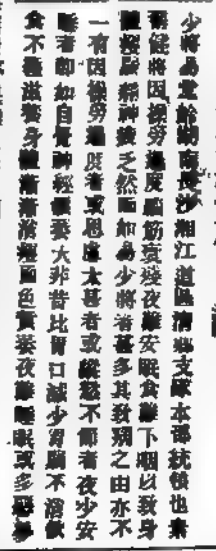 少將易堂齡湖南長沙湘江道區清鄉支隊本部統領也素
著能將因操勞過度腦筋衰殘夜難安眠食難下咽以致身
體瘦弱精神疲乏然而如易少將者甚多其致病之由亦不
一有因操勞過度者或思慮太甚者或縱慾不節者夜少安
睡者卽如自覺神經衰大非昔比胃口減少胃腸不消飲
食不能滋養身體漸漸瘦面色黃萎夜難睡眠或多惡夢